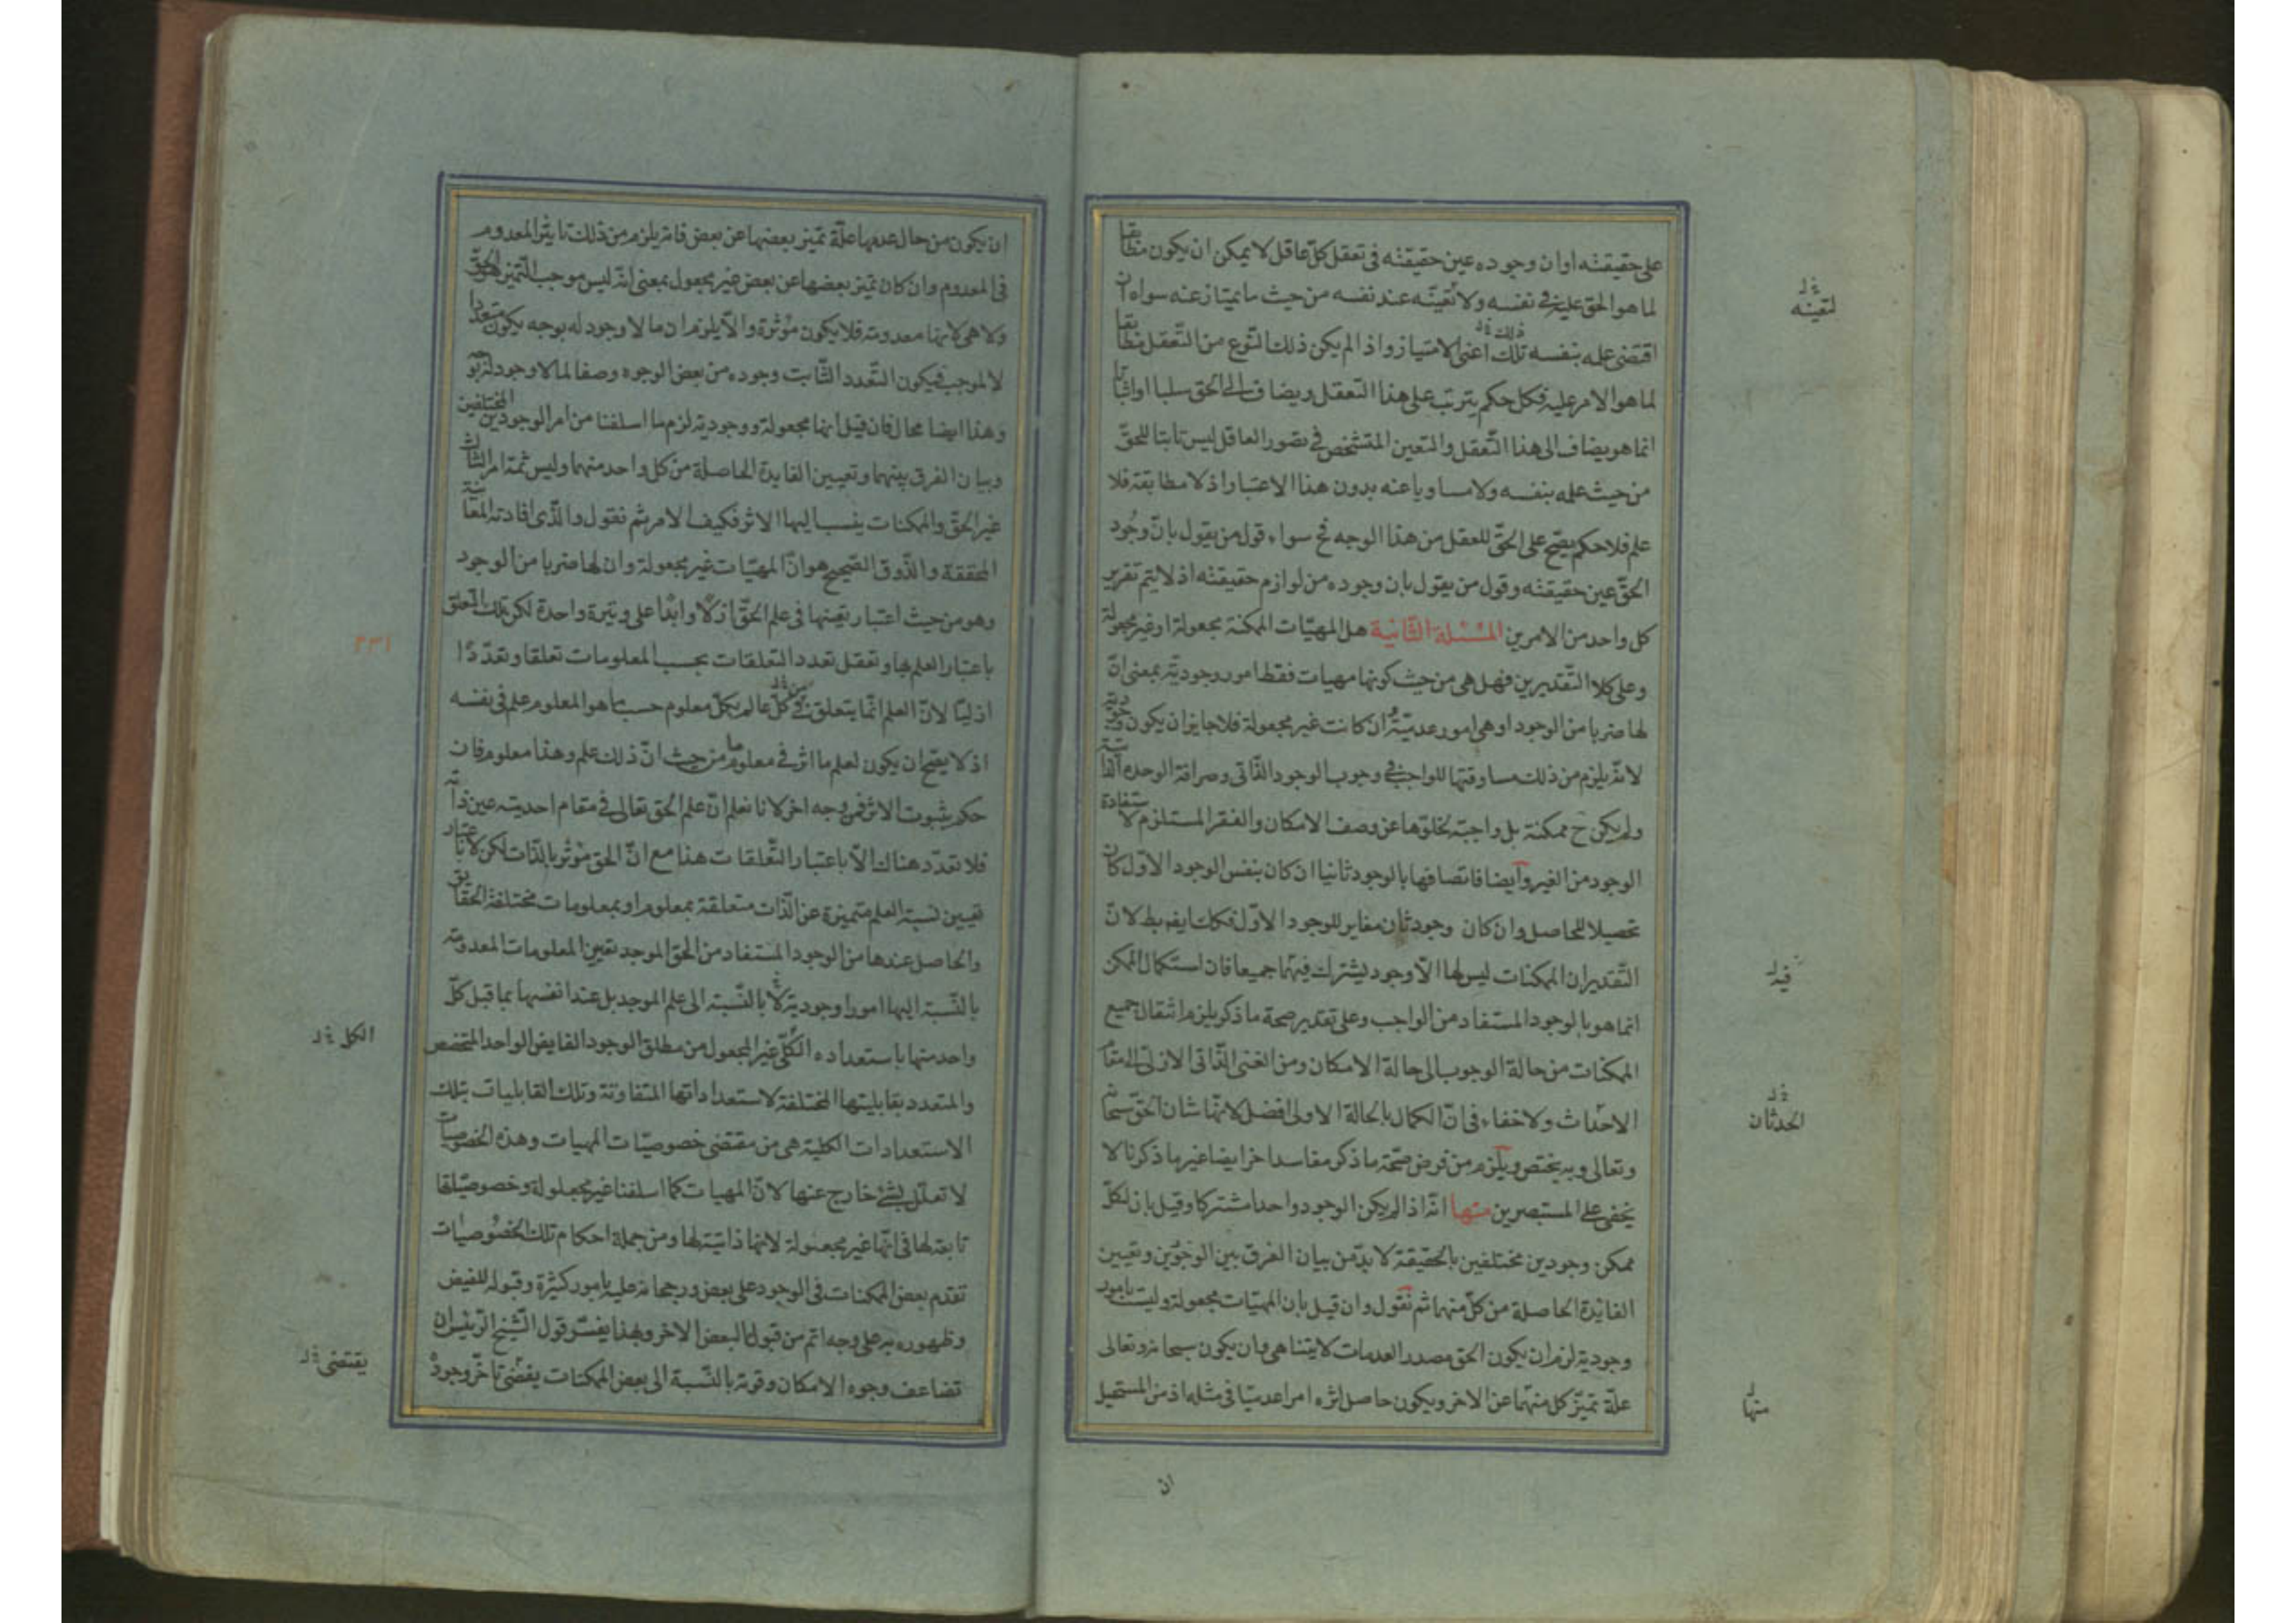 على حقيقته او ان وجوده عين حقيقته فى تعقل كلّ عاقل لا يمكن ان يكون مطابقا
لما هو الحق عليه فى نفسه ولا تعيّنه عند نفسه من حيث ما يمتاز عنه سواه ان
اقتضى علمه بنفسه تلك اعنى الامتياز واذا لم يكن ذلك النّوع من التّعقل مطابقا
لما هو الامر عليه فكل حكم يترتب على هذا التّعقل ويضاف الى الحق سلبا او اثباتا
انما هو يضاف الى هذا التّعقل والتعين المتشخص فى تصور العاقل ليس ثابتا للحقّ
من حيث علمه بنفسه ولا مساويا عنه بدون هذا الاعتبار اذ لا مطابقة فلا
علم فلا حكم يصّح على الحقّ للعقل من هذا الوجه فح سواء قول من يقول بانّ وجُود
الحقّ عين حقيقته وقول من يقول بان وجوده من لوازم حقيقته اذ لا يتم تقرير
كل واحد من الامرين المسئلة الثّانية هل المهيّات الممكنة مجعولة او غير مجعولة
وعلى كلا التّقديرين فهل هى من حيث كونها مهيات فقط امور وجوديّة بمعنى انّ
لها ضربا من الوجود او هى امور عدميّة ان كانت غير مجعولة فلا جايز ان يكون وجودية
لانّه يلزم من ذلك مساوقتها للواجب فى وجوب الوجود الذّاتى وصرافة الوحده الذاتية
ولم يكن ح ممكنة بل واجبة لخلوّها عن وصف الامكان والفقر المستلزم لاستفادة
الوجود من الغير وايضا فاتصافها بالوجود ثانيا ان كان بنفس الوجود الاوّل كان
تحصيلا للحاصل وان كان وجود ثان مغاير للوجود الاوّل فكك ايضا بط لانّ
التّقدير ان الممكنات ليس لها الاّ وجود يشترك فيها جميعا فان استكمال الممكن
انما هو بالوجود المستفاد من الواجب وعلى تقدير صحة ما ذكر يلزم انتقال جميع
الممكنات من حالة الوجوب الى حالة الامكان ومن الغنى الذّاتى الازلى الى مقام
الاحداث ولا خفاء فى انّ الكمال بالحالة الاولى افضل لانّها شان الحقّ سبحانه
وتعالى وبه يختص ويلزم من فرض صحّة ما ذكر مفاسد اخر ايضا غير ما ذكرنا لا
يخفى على المستبصرين منها انّه اذا لم يكن الوجود واحدا مشتركا وقيل بان لكلّ
ممكن وجودين مختلفين بالحقيقة لا بدّ من بيان الفرق بين الوجودين وتعيين
الفائدة الحاصلة من كلّ منهما ثم نقول وان قيل بان المهيّات مجعولة وليست بامور
وجودية لزم ان يكون الحق مصدر العدمات لا يتناهى وان يكون سبحانه وتعالى
علّة تميّز كل منها عن الاخر ويكون حاصل اثره امرا عدميّا فى مثله اذ من المستحيل
ان
لتعيّنه
ذلك
فيه
الحدثان
منها
ان يكون من حال عدمها علّة تميّز بعضها عن بعض فانه يلزم من ذلك تاثير المعدوم
فى المعدوم وان كان تميّز بعضها عن بعض غير مجعول بمعنى انّه ليس موجب التّميّز هو الحقّ
ولا هى لانها معدومة فلا يكون مؤثرة والاّ يلزم ان ما لا وجود له بوجه يكون متعددا
لا لموجب فيكون التّعدد الثّابت وجوده من بعض الوجوه وصفا لما لا وجود له بوجه
وهذا ايضا محال فان قيل انها مجعولة ووجودية لزم ما اسلفنا من امر الوجودين المختلفين
وبيان الفرق بينهما وتعيين الفايدة الحاصلة من كل واحد منهما وليس ثمة امر ثالث
غير الحقّ والممكنات ينسب اليها الاثر فكيف الامر ثم نقول والذّى افادته المعاينة
المحققة والذّوق الصّحيح هو انّ المهيّات غير مجعولة وان لها ضربا من الوجود
وهو من حيث اعتبار تعينها فى علم الحقّ ازلا وابدا على وتيرة واحدة لكن تلك التعلق
باعتبار العلم بها وتعقل تعدد التعلقات بحسب المعلومات تعلقا وتعدّدا
ازليّا لانّ العلم انّما يتعلق من كلّ عالم بكلّ معلوم حسب ما هو المعلوم علم فى نفسه
اذ لا يصّح ان يكون لعلم ما اثر فى معلوم ما من حيث انّ ذلك علم وهذا معلوم فان
حكم بثبوت الاثر فمن وجه اخر لانا نعلم انّ علم الحق تعالى فى مقام احديته عين ذاته
فلا تعدّد هناك الاّ باعتبار التّعلقات هذا مع انّ الحق مؤثر بالذّات لكن لا باعتبار
تعيين نسبة العلم متميزة عن الذّات متعلقة بمعلوم او بمعلومات مختلفة الحقايق
والحاصل عندها من الوجود المستفاد من الحق الموجد تعيين المعلومات المعدومة
بالنّسبة اليها امورا وجودية لا بالنّسبة الى علم الموجد بل عند انفسها بما قبل كلّ
واحد منها باستعداده الكلّى غير المجعول من مطلق الوجود الفايض الواحد المتخصص
والمتعدد بقابليتها المختلفة لاستعداداتها المتفاوتة وتلك القابليات بتلك
الاستعدادات الكلية هى من مقتضى خصوصيّات المهيات وهذه الخصوصيات
لا تعلّل بشئ خارج عنها لانّ المهيات كما اسلفنا غير مجعولة وخصوصيّاتها
تابعة لها فى انّها غير مجعولة لانها ذاتية لها ومن جملة احكام تلك الخصُوصيات
تقدم بعض الممكنات فى الوجود على بعض ورجحانه عليه بامور كثيرة وقبوله للفيض
وظهوره به على وجه اتم من قبول البعض الاخر وبهذا يفسّر قول الشّيخ الرّئيس ان
تضاعف وجوه الامكان وقوته بالنّسبة الى بعض الممكنات يقضى تاخّر وجود
٢٣١
الكل
يقتضى